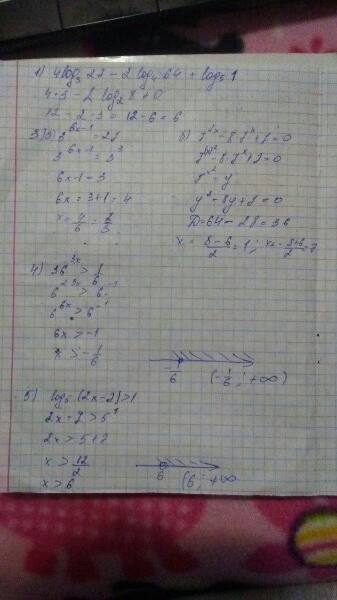 1) 4log₃ 27 − 2 log₂ 64 + log₅ 1
4·3 − 2 log₂ 8 + 0
12 − 2·3 = 12 − 6 = 6
3) а) 3^(6x−1) = 27
3^(6x−1) = 3^3
6x−1 = 3
6x = 3+1 = 4
x = 4/6 = 2/3
б) 7^(2x) − 8·7^x + 7 = 0
y² − 8y + 7 = 0
D = 64 − 28 = 36
x = (8−6)/2 = 1; x = (8+6)/2 = 7
4) 36^(3x) > 1/6
6^(2·3x) > 6^(−1)
6^(6x) > 6^(−1)
6x > −1
x > −1/6
(−1/6; +∞)
5) log₅ (2x−2) > 1
2x − 7 > 5^1
2x > 5+7
x > 12/2
x > 6
6
(6; +∞